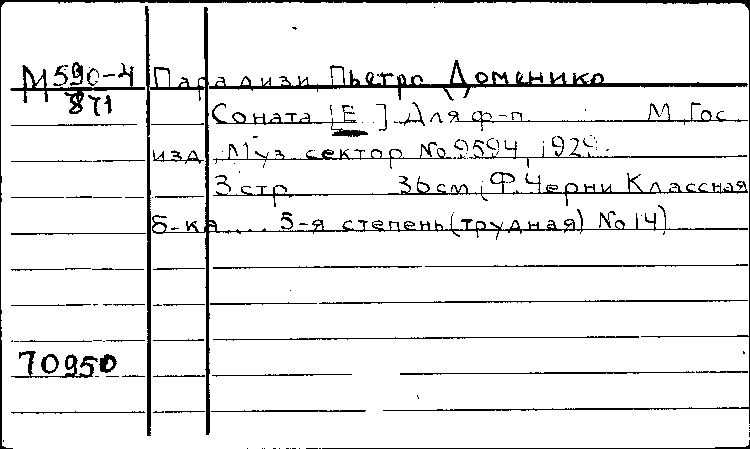 М 590-4 Парадизи, Пьетро Доменико
871
Соната [E] Для ф-п. М. Гос.
изд. Муз. сектор № 9594, 1929.
3 стр. 36 см. (Ф. Черни Классная
б-ка.... 5-я степень (трудная) № 14)
70950